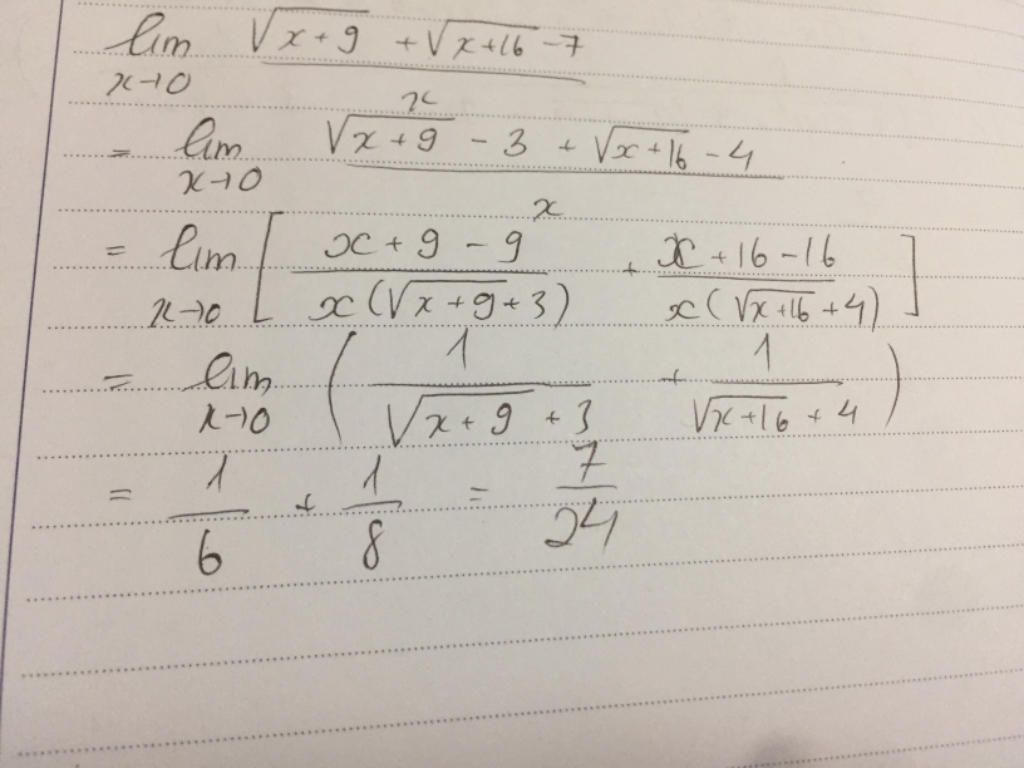 lim x→0 (√(x+9) + √(x+16) - 7) / x
= lim x→0 (√(x+9) - 3 + √(x+16) - 4) / x
= lim x→0 [ (x+9-9) / (x(√(x+9)+3)) + (x+16-16) / (x(√(x+16)+4)) ]
= lim x→0 ( 1 / (√(x+9)+3) + 1 / (√(x+16)+4) )
= 1/6 + 1/8 = 7/24